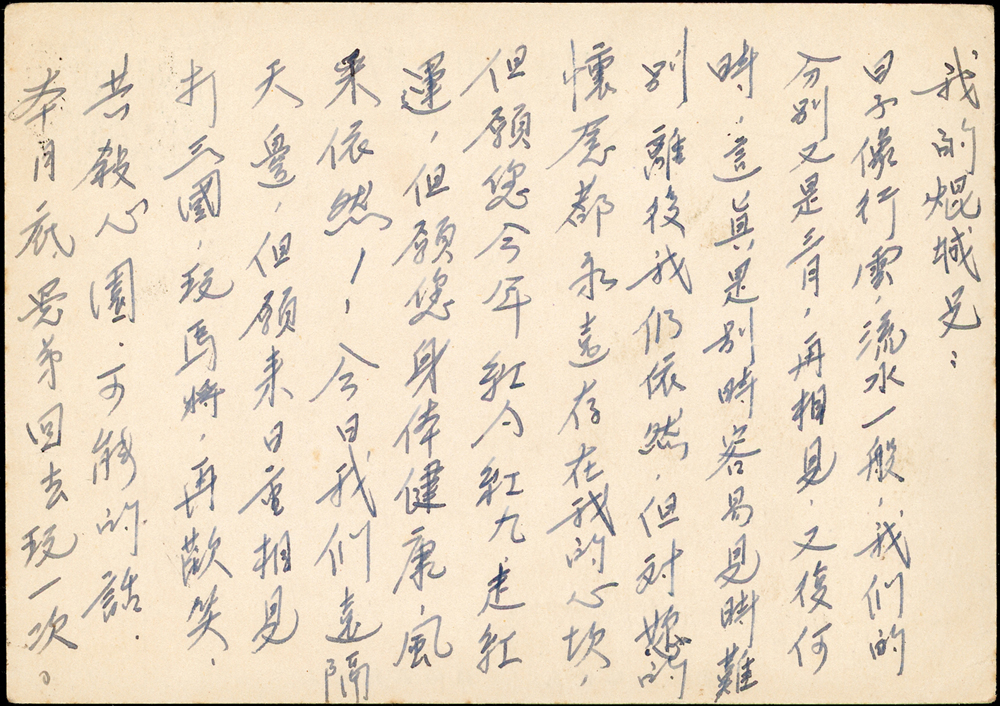 我的焜城兄：
日子像行雲，流水一般，我們的
分別又是三月，再相見，又復何
時，這真是別時容易見時難
別離後我仍依然，但对您的
懷念都永遠存在我的心坎，
但願您今年紅今紅九走紅
運，但願您身体健康，風
采依然！，今日我們遠隔
天邊，但願來日重相見
打三國，玩馬將，再歡笑，
共殺心園，可能的話，
本月底愚弟回去玩一次。